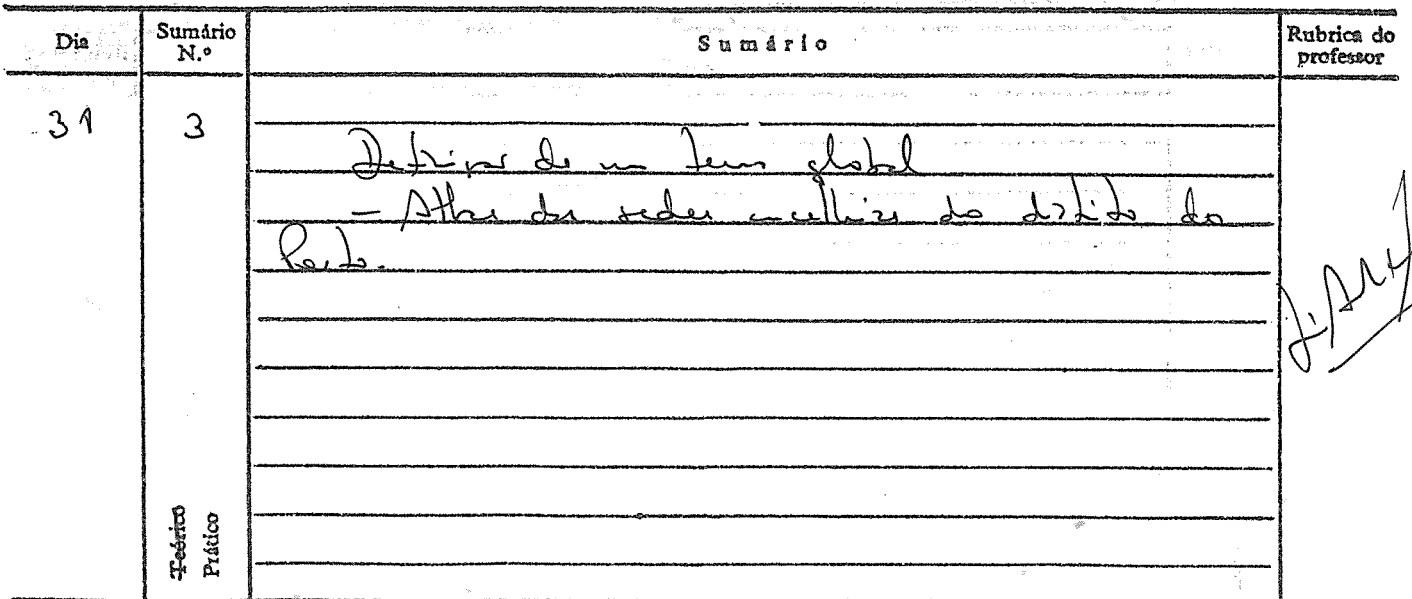 Dia
Sumário N.º
Sumário
Rubrica do professor
31
3
Definição de um tema global
- Atlas das sedes concelhias do distrito do
Porto.
Teórico
Prático